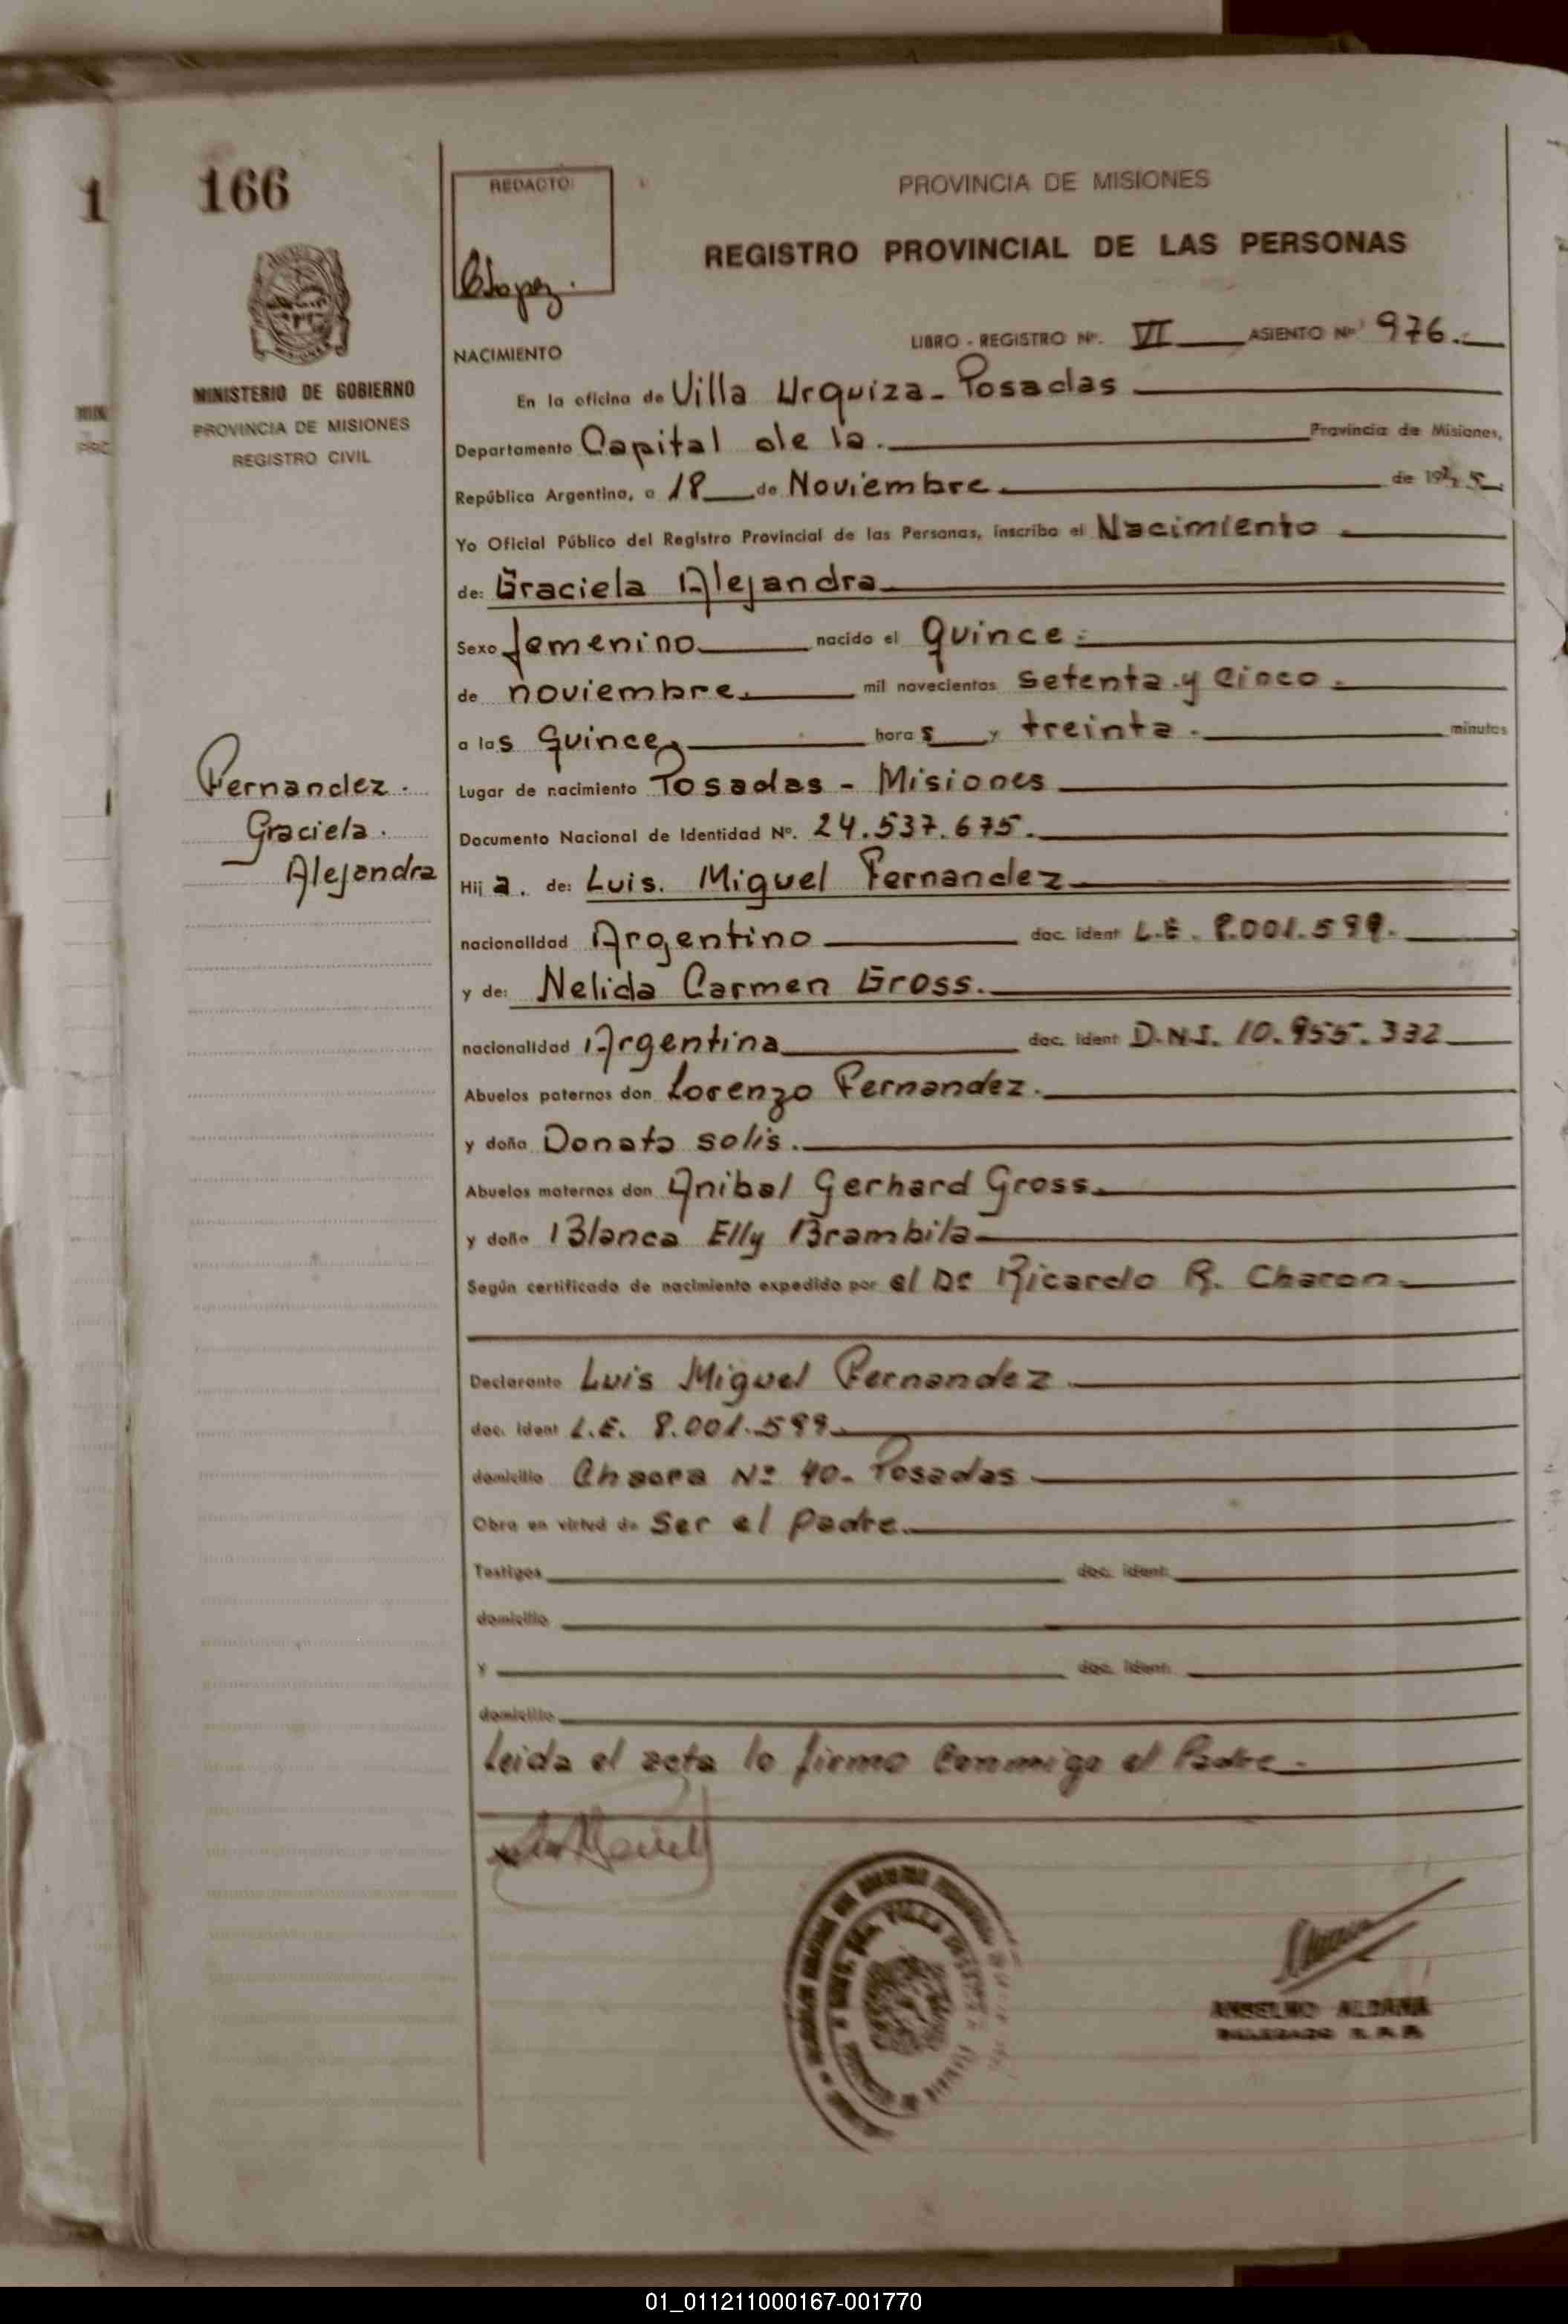 166
REDACTO:
PROVINCIA DE MISIONES
REGISTRO PROVINCIAL DE LAS PERSONAS
MINISTERIO DE GOBIERNO
PROVINCIA DE MISIONES
REGISTRO CIVIL
LIBRO - REGISTRO Nº. VI ASIENTO Nº 976.
NACIMIENTO
En la oficina de Villa Urquiza - Posadas
Departamento Capital de la. Provincia de Misiones,
República Argentina, a 18 de Noviembre de 1975
Yo Oficial Público del Registro Provincial de las Personas, inscribo el Nacimiento
de: Graciela Alejandra
Sexo femenino nacido el Quince
de noviembre. mil novecientos setenta y cinco.
a las quince horas y treinta. minutos
Lugar de nacimiento Posadas - Misiones
Documento Nacional de Identidad Nº. 24.537.675.
Fernandez.
Graciela.
Alejandra
Hija. de: Luis. Miguel Fernandez
nacionalidad Argentino doc. ident L.E. 8.001.599.
y de: Nelida Carmen Gross.
nacionalidad Argentina doc. ident D.N.I. 10.955.332
Abuelos paternos don Lorenzo Fernandez.
y doña Donata solis.
Abuelos maternos don Anibal Gerhard Gross.
y doña Blanca Elly Brambila
Según certificado de nacimiento expedido por el Dr Ricardo R. Charon.
Declarante Luis Miguel Fernandez
doc. ident L.E. 8.001.599
domicilio Chacra Nº 40. Posadas
Obra en virtud de Ser el padre.
Testigos doc. ident.
domicilio
y doc. ident.
domicilio
Leida el acta lo firma conmigo el Padre.
ANSELMO ALDANA
DELEGADO R.P.P.
01_011211000167-001770